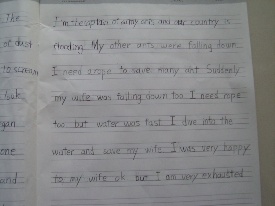 The
I'm the captain of army ants and our country is
of dust
flooding. My other ants were falling down
to scream
I need a rope to save many ant Suddenly
my wife was falling down too. I need rope
too. but water was fast I dive into the
one
water and save my wife. I was very happy
to my wife ok but I am very exhausted